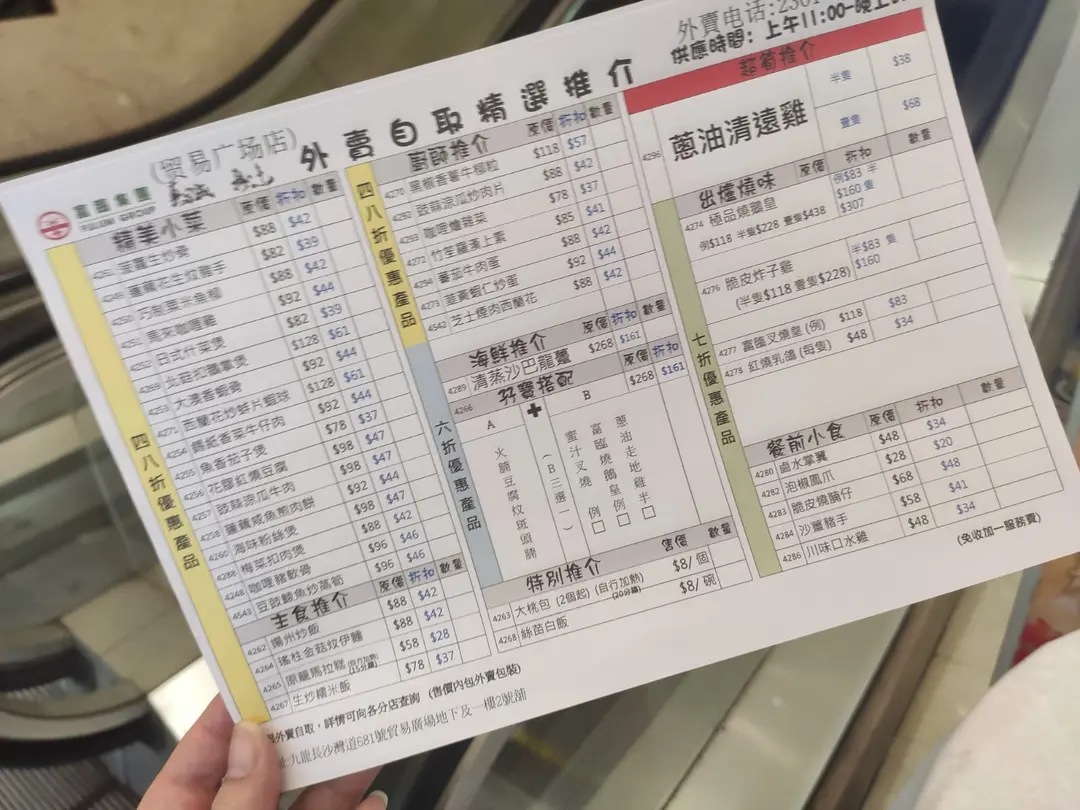 外賣电话:
供應時間: 上午11:00-晚上
(贸易广场店) 外賣自取精選推介
富臨集團
FULUM GROUP
四八折優惠產品
精美小菜 原價 折扣 數量
生炒骨 $88 $42
4249 蓮藕花生炆豬手 $82 $39
4250 巧制粟米魚柳 $88 $42
咖喱雞 $92 $44
4252 日式什菜煲 $82 $39
北菇扣鵝掌煲 $128 $61
4259 大澳香蝦骨 $92 $44
4271 西蘭花炒蚌片蝦球 $128 $61
4254 錫紙香菜牛仔肉 $92 $44
4255 魚香茄子煲 $78 $37
4256 花膠紅燒豆腐 $98 $47
4257 豉蒜涼瓜牛肉 $98 $47
4258 蓮藕咸魚煎肉餅 $92 $44
4260 海味粉絲煲 $98 $47
4288 梅菜扣肉煲 $88 $42
4248 咖喱豬軟骨 $96 $46
4543 豆豉鯪魚炒萵筍 $96 $46
主食推介 原價 折扣 數量
4262 揚州炒飯 $88 $42
4264 瑤柱金菇炆伊麵 $88 $42
4265 原籠馬拉糕 (自行加熱) (15分鐘) $58 $28
4267 生炒糯米飯 $78 $37
四八折優惠產品
廚師推介 原價 折扣 數量
4270 黑椒香蔥牛柳粒 $118 $57
4292 豉蒜涼瓜炒肉片 $88 $42
4293 咖喱燴雜菜 $78 $37
4272 竹笙羅漢上素 $85 $41
4294 蕃茄牛肉蛋 $88 $42
4273 韮黃蝦仁炒蛋 $92 $44
4542 芝士煙肉西蘭花 $88 $42
六折優惠產品
海鮮推介 原價 折扣 數量
4289 清蒸沙巴龍躉 $268 $161
孖寶搭配 原價 折扣
4266 $268 $161
A + B
火腩豆腐炆斑頭腩
(B三選一)
蜜汁叉燒 例□
富臨燒鵝皇 例□
蔥油走地雞 半□
特別推介 售價 數量
4263 大桃包 (2個起) (自行加熱) (20分鐘) $8/個
4268 絲苗白飯 $8/碗
超筍推介
4296 蔥油清遠雞 半隻 $38
壹隻 $68
七折優惠產品
出爐燒味 原價 折扣 數量
4274 極品燒鵝皇 例$83 半$160 隻$307
例$118 半隻$228 壹隻$438
4276 脆皮炸子雞 半$83 隻$160
(半隻$118 壹隻$228)
4277 富臨叉燒皇 (例) $118 $83
4278 紅燒乳鴿 (每隻) $48 $34
餐前小食 原價 折扣 數量
4280 鹵水掌翼 $48 $34
4282 泡椒鳳爪 $28 $20
4283 脆皮燒腩仔 $68 $48
4284 沙薑豬手 $58 $41
4286 川味口水雞 $48 $34
(免收加一服務費)
外賣自取，詳情可向各分店查詢 (售價內包外賣包裝)
九龍長沙灣道681號貿易廣場地下及一樓2號舖